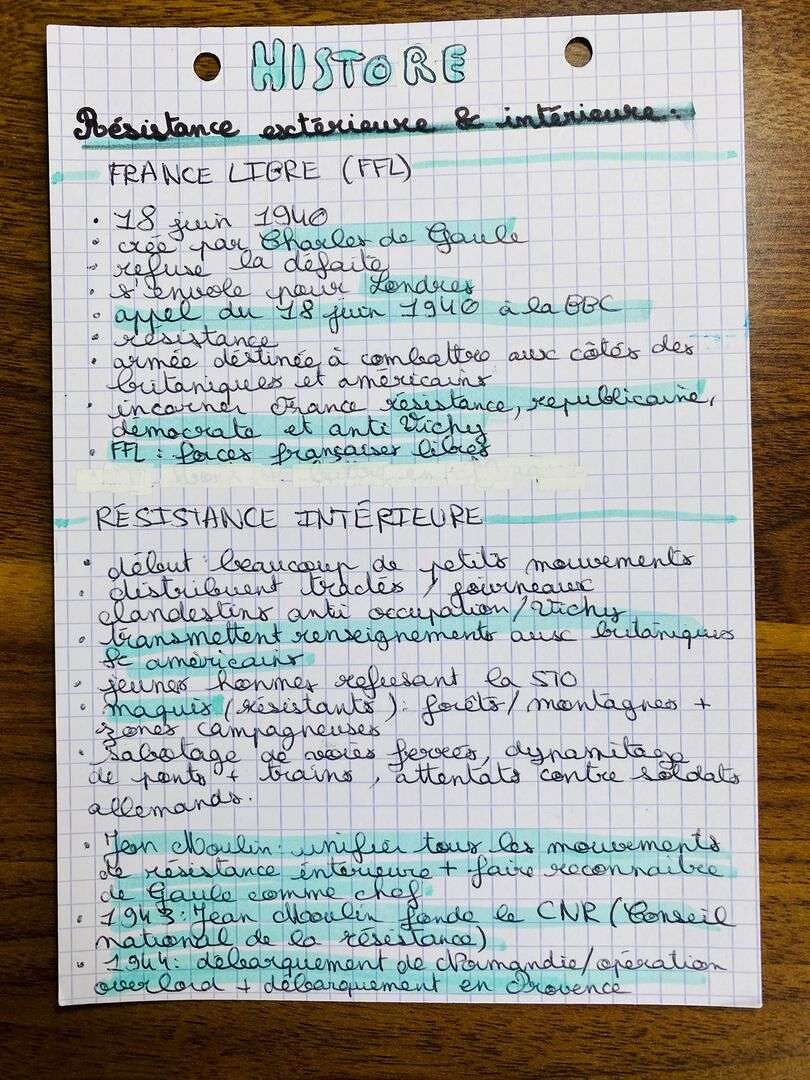 HISTORE
Résistance extérieure & intérieure.
FRANCE LIBRE (FFL)
• 18 juin 1940
• créé par Charles de Gaule
• refuse la défaite
• s'envole pour Londres
• appel du 18 juin 1940 à la BBC
• résistance
• armée déstinée à combattre aux côtés des
britaniques et américains
• incarner France résistance, republicaine,
démocrate et anti Vichy
• FFL : forces françaises libres
RÉSISTANCE INTÉRIEURE
• début : beaucoup de petits mouvements
• distribuent tractes / journeaux
clandestins anti occupation/Vichy
• transmettent renseignements aux britaniques
& américains
• jeunes hommes refusant la STO
• maquis (résistants) : forêts/montagnes +
zones campagneuses
• sabotage de voies ferrées, dynamitage
de ponts + trains, attentats contre soldats
allemands.
• Jean Moulin : unifier tous les mouvements
de résistance intérieure + faire reconnaitre
de Gaule comme chef
• 1943 : Jean Moulin fonde le CNR (Conseil
national de la résistance)
• 1944 : débarquement de Normandie/opération
overlord + débarquement en Provence